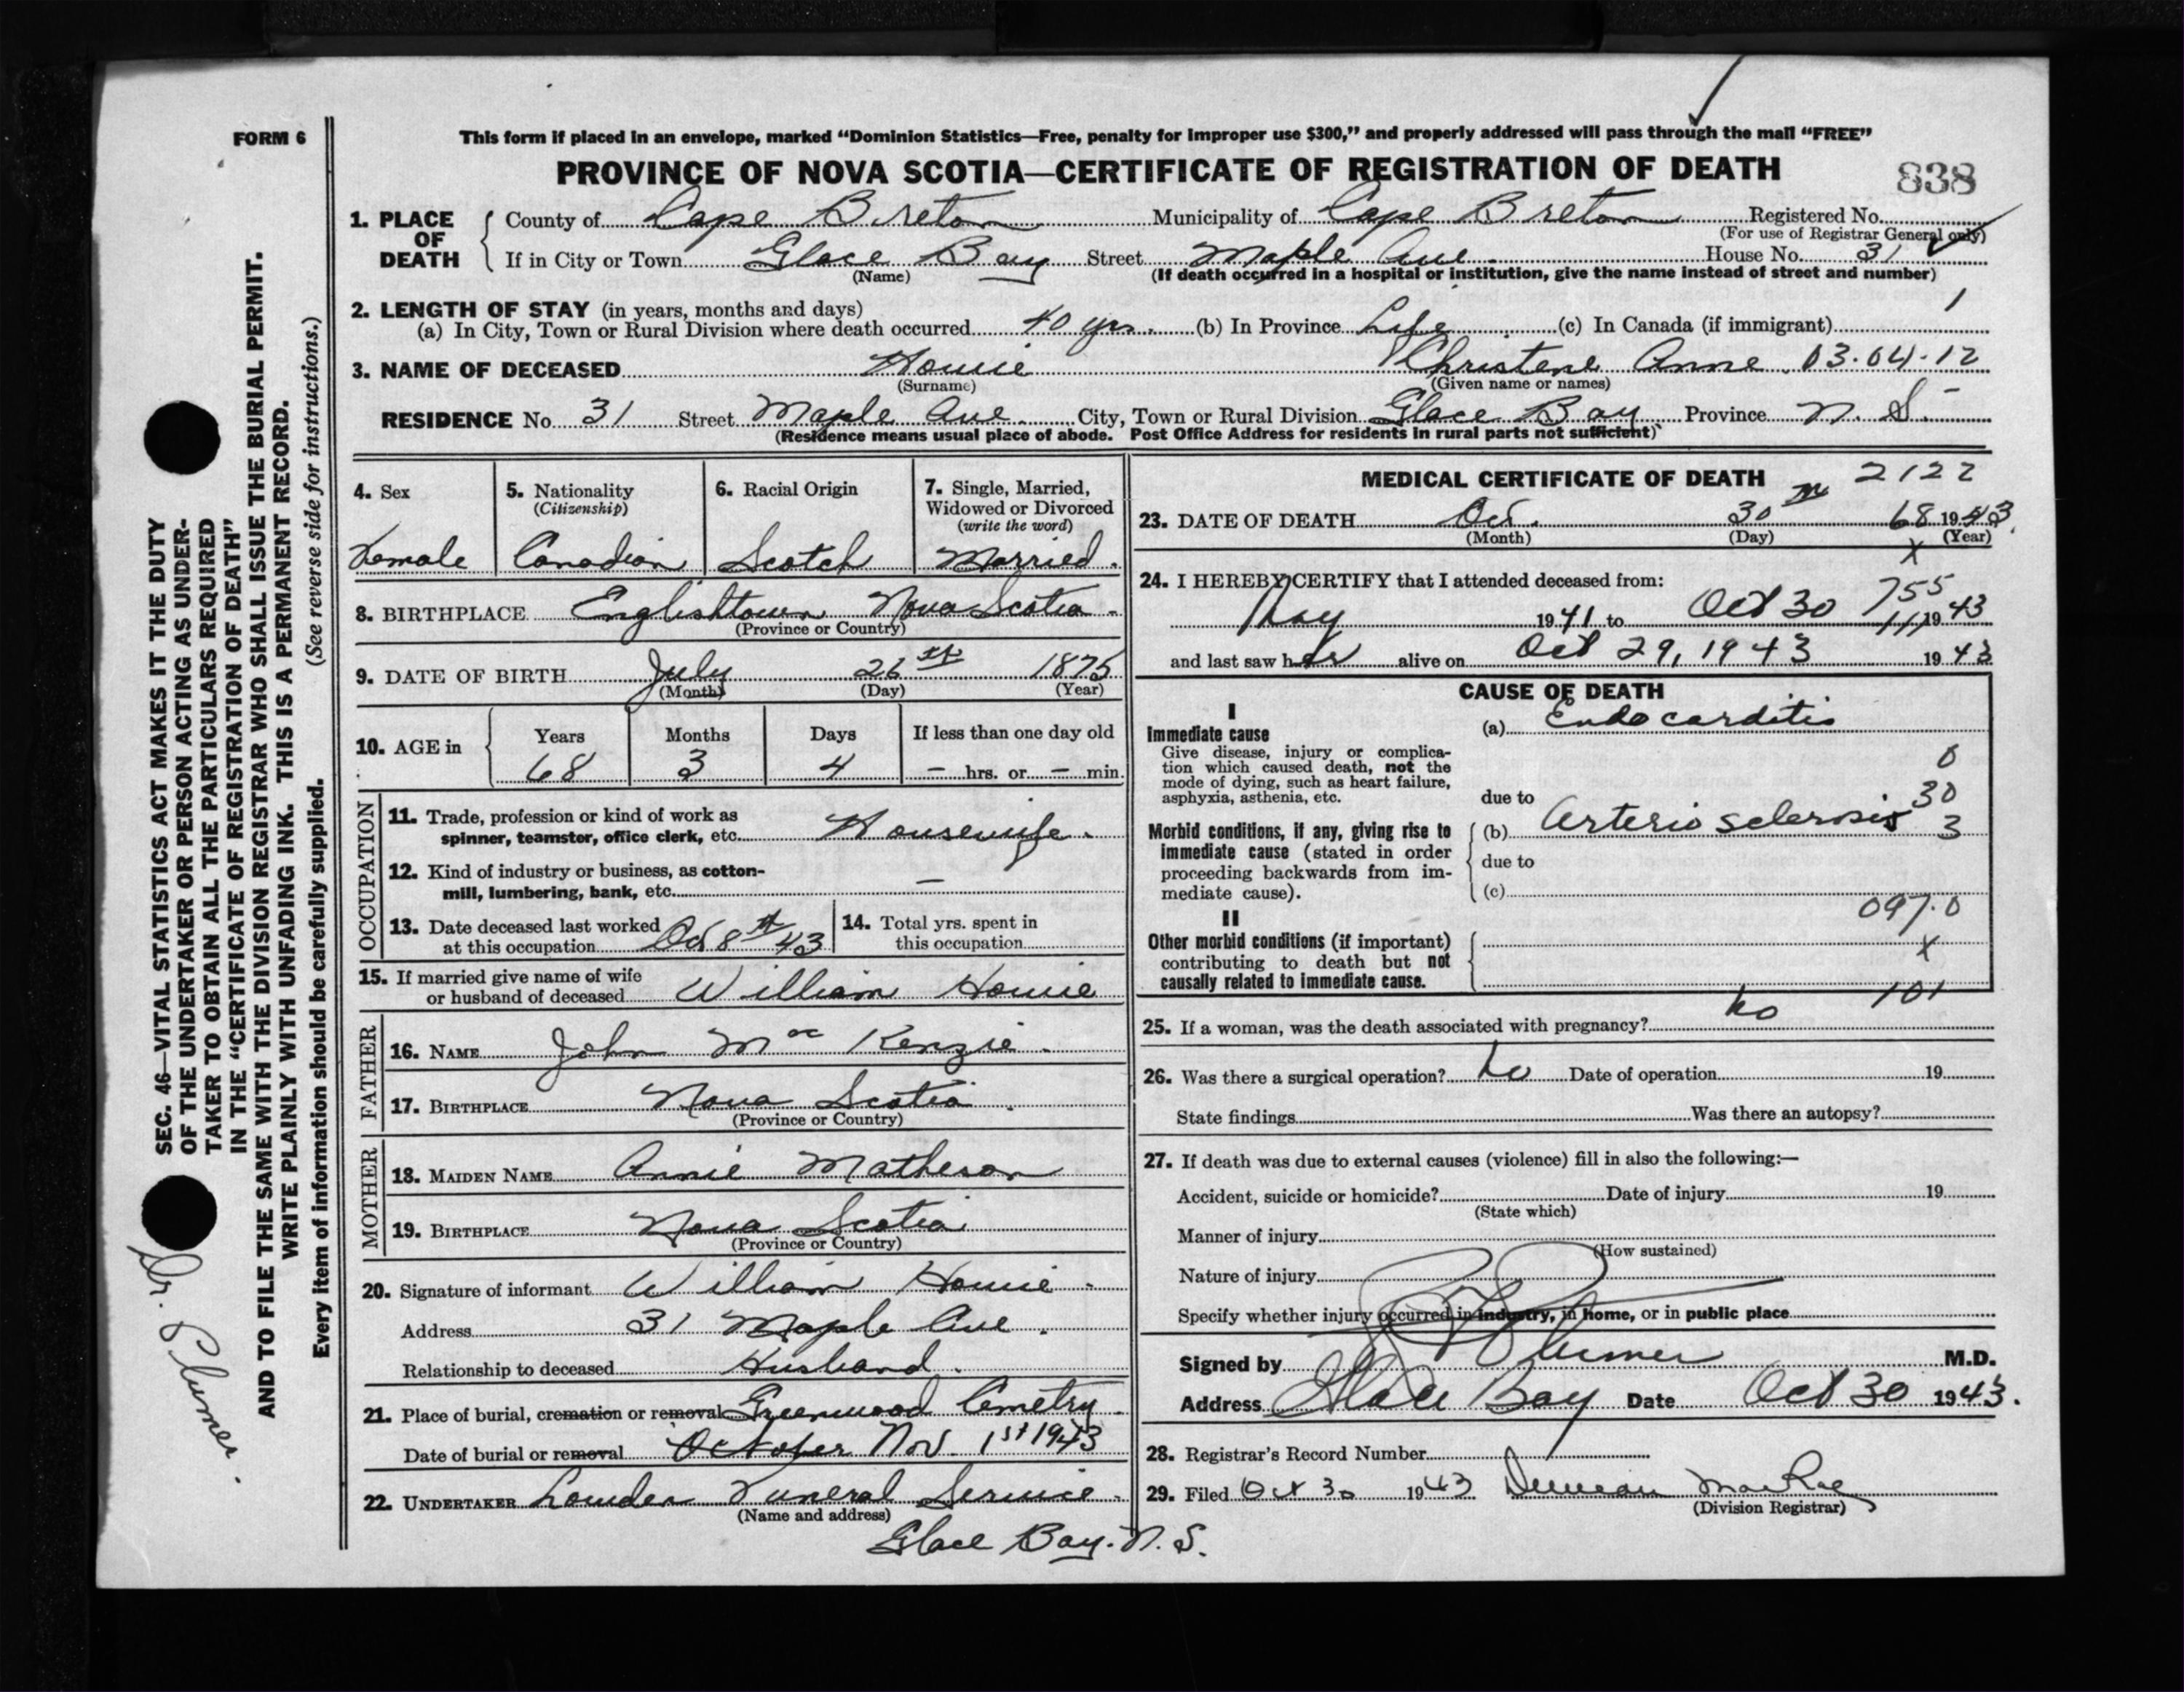 FORM 6
This form if placed in an envelope, marked "Dominion Statistics—Free, penalty for improper use $300," and properly addressed will pass through the mail "FREE"
PROVINCE OF NOVA SCOTIA—CERTIFICATE OF REGISTRATION OF DEATH
838
1. PLACE OF DEATH County of Cape Breton Municipality of Cape Breton Registered No.
(For use of Registrar General only)
If in City or Town Glace Bay Street Maple Ave. House No. 31
(Name) (If death occurred in a hospital or institution, give the name instead of street and number)
2. LENGTH OF STAY (in years, months and days) 1
(a) In City, Town or Rural Division where death occurred 40 yrs. (b) In Province Life (c) In Canada (if immigrant)
3. NAME OF DECEASED Howie Christene Anne 03.04.12
(Surname) (Given name or names)
RESIDENCE No. 31 Street Maple Ave. City, Town or Rural Division Glace Bay Province N. S.
(Residence means usual place of abode. Post Office Address for residents in rural parts not sufficient)
4. Sex Female
5. Nationality (Citizenship) Canadian
6. Racial Origin Scotch
7. Single, Married, Widowed or Divorced (write the word) Married.
8. BIRTHPLACE Englishtown Nova Scotia.
(Province or Country)
9. DATE OF BIRTH July 26th 1875
(Month) (Day) (Year)
10. AGE in Years 68 Months 3 Days 4 If less than one day old – hrs. or – min.
OCCUPATION
11. Trade, profession or kind of work as spinner, teamster, office clerk, etc. Housewife.
12. Kind of industry or business, as cotton-mill, lumbering, bank, etc. –
13. Date deceased last worked at this occupation Oct 8th 43
14. Total yrs. spent in this occupation
15. If married give name of wife or husband of deceased William Howie
FATHER
16. NAME John MacKenzie.
17. BIRTHPLACE Nova Scotia.
(Province or Country)
MOTHER
18. MAIDEN NAME Annie Matheson
19. BIRTHPLACE Nova Scotia
(Province or Country)
20. Signature of informant William Howie.
Address 31 Maple Ave.
Relationship to deceased Husband.
21. Place of burial, cremation or removal Greenwood Cemetry.
Date of burial or removal October Nov. 1st 1943
22. UNDERTAKER Lowden Funeral Service.
(Name and address)
Glace Bay. N. S.
MEDICAL CERTIFICATE OF DEATH 2122
23. DATE OF DEATH Oct. 30th 68 1943.
(Month) (Day) (Year)
X
24. I HEREBY CERTIFY that I attended deceased from: 755
May 1941 to Oct 30 111 1943
and last saw her alive on Oct 29, 1943 1943
CAUSE OF DEATH
I
Immediate cause (a) Endocarditis
Give disease, injury or complication which caused death, not the mode of dying, such as heart failure, asphyxia, asthenia, etc. 0
due to 30
Morbid conditions, if any, giving rise to immediate cause (stated in order proceeding backwards from immediate cause). (b) Arterio sclerosis 3
due to
(c)
097.0
II
Other morbid conditions (if important) contributing to death but not causally related to immediate cause. X
101
25. If a woman, was the death associated with pregnancy? No
26. Was there a surgical operation? No Date of operation 19
State findings Was there an autopsy?
27. If death was due to external causes (violence) fill in also the following:—
Accident, suicide or homicide? Date of injury 19
(State which)
Manner of injury
(How sustained)
Nature of injury
Specify whether injury occurred in industry, in home, or in public place
Signed by M.D.
Address Glace Bay Date Oct 30 1943.
28. Registrar's Record Number
29. Filed Oct 30 1943 Duncan MacRae
(Division Registrar)
SEC. 46—VITAL STATISTICS ACT MAKES IT THE DUTY
OF THE UNDERTAKER OR PERSON ACTING AS UNDER-
TAKER TO OBTAIN ALL THE PARTICULARS REQUIRED
IN THE "CERTIFICATE OF REGISTRATION OF DEATH"
AND TO FILE THE SAME WITH THE DIVISION REGISTRAR WHO SHALL ISSUE THE BURIAL PERMIT.
WRITE PLAINLY WITH UNFADING INK. THIS IS A PERMANENT RECORD.
Every item of information should be carefully supplied. (See reverse side for instructions.)
Dr.